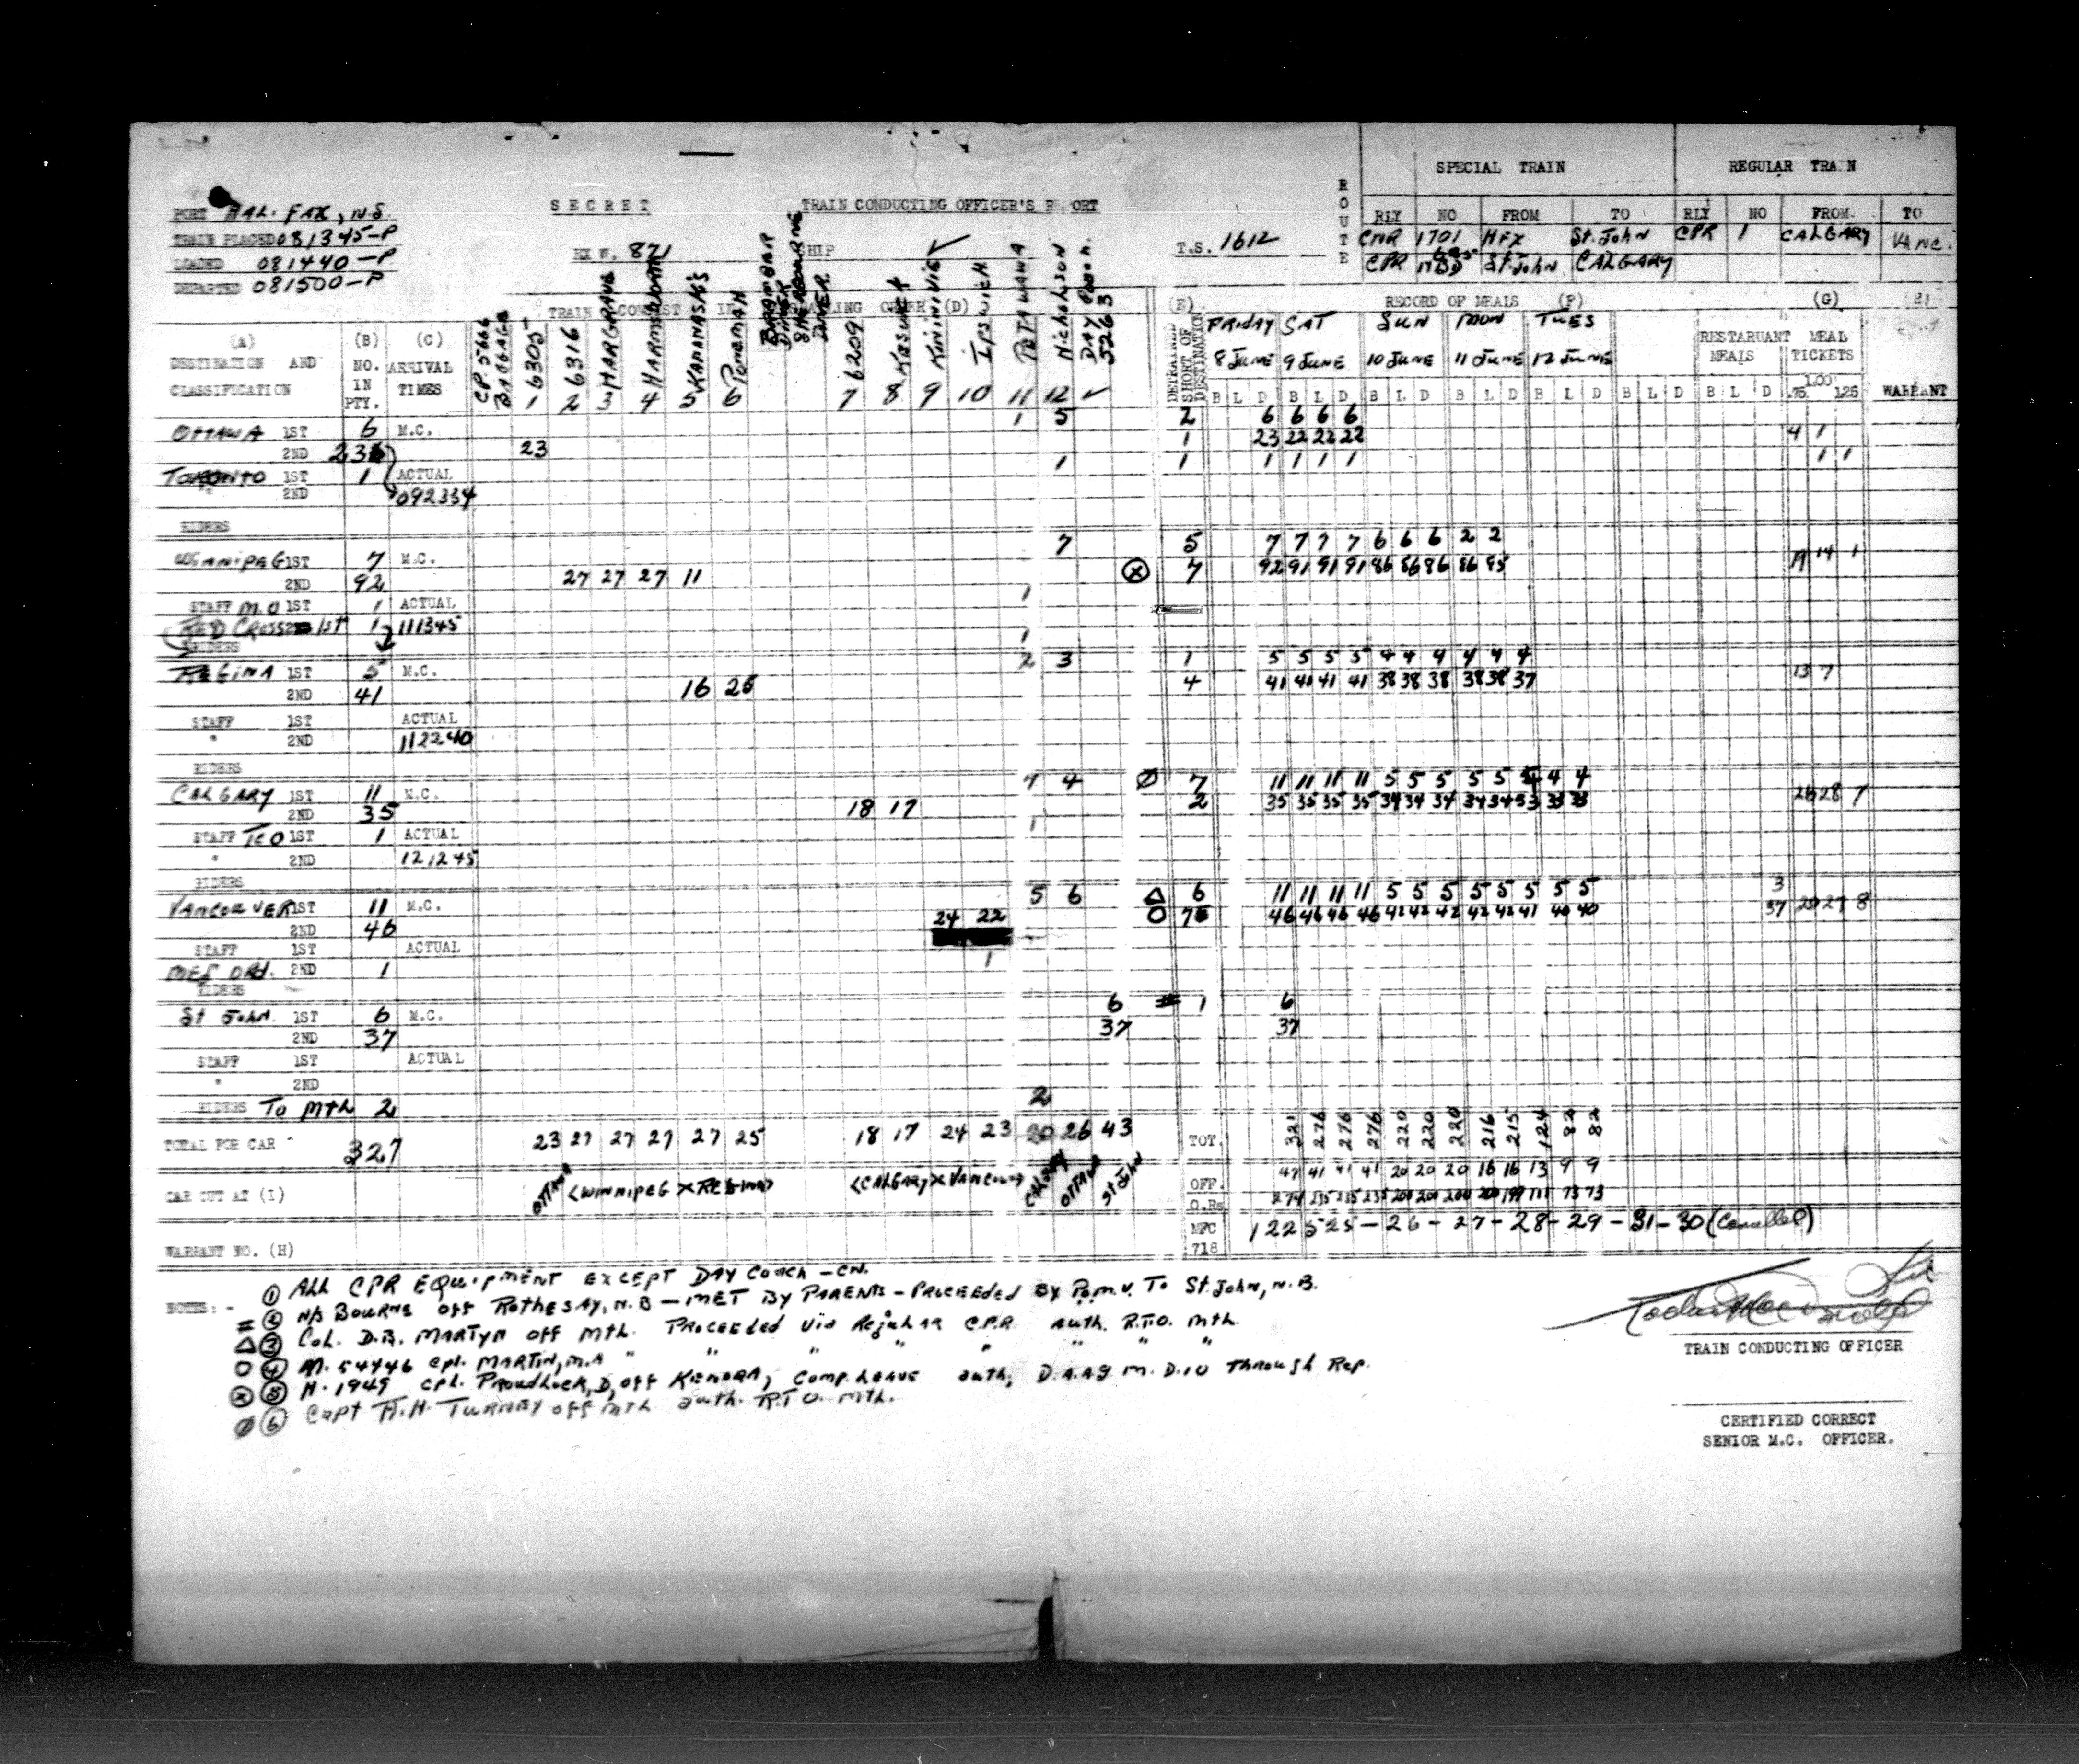 SPECIAL TRAIN REGULAR TRAIN
PORT HALIFAX, N.S. SECRET TRAIN CONDUCTING OFFICER'S REPORT ROUTE RLY NO FROM TO RLY NO FROM TO
TRAIN PLACED 081345-P HX W. 871 SHIP T.S. 1612 CNR 1701 HFX St. John CPR 1 CALGARY VANC.
LOADED 081440-P CPR St. John CALGARY
DEPARTED 081500-P
TRAIN CONSIST IN ORDER (D) (E) RECORD OF MEALS (F) (G)
(A) (B) (C) CP 5666 BAGGAGE 6305 6316 HARGRAVE HARMSWORTH KANANASKIS PONEMAH DINER SHERBOURNE DINER 6209 KINNIVIE IPSWICH PETAWAWA NICHOLSON DAY 5263 DETRAINED SHORT OF DESTINATION FRIDAY SAT SUN MON TUES
DESTINATION AND NO. ARRIVAL 8 JUNE 9 JUNE 10 JUNE 11 JUNE 12 JUNE RESTARUANT MEALS MEAL TICKETS
CLASSIFICATION IN PTY. TIMES 1 2 3 4 5 6 7 8 9 10 11 12 B L D B L D B L D B L D B L D B L D B L D .75 1.00 1.25 WARRANT
OTTAWA 1ST 6 M.C. 1 5 2 6 6 6 6
2ND 23 23 1 23 22 22 22 4 1
TORONTO 1ST 1 ACTUAL 1 1 1 1 1 1 1 1
" 2ND 092334
RIDERS
WINNIPEG 1ST 7 M.C. 7 5 7 7 7 7 6 6 6 2 2
2ND 92 27 27 27 11 7 92 91 91 91 86 86 86 86 85 19 14 1
STAFF M.O 1ST 1 ACTUAL 1
RED CROSS 1ST 1 111345 1
RIDERS
REGINA 1ST 5 M.C. 2 3 1 5 5 5 5 4 4 4 4 4 4
2ND 41 16 25 4 41 41 41 41 38 38 38 38 38 37 13 7
STAFF 1ST ACTUAL
" 2ND 112240
RIDERS
CALGARY 1ST 11 M.C. 7 4 Ø 7 11 11 11 11 5 5 5 5 5 4 4
2ND 35 18 17 2 35 35 35 35 34 34 34 34 34 33 33 33 28 7
STAFF TCO 1ST 1 ACTUAL 1
" 2ND 121245
RIDERS
VANCOUVER 1ST 11 M.C. 5 6 △ 6 11 11 11 11 5 5 5 5 5 5 5 5 3
2ND 46 24 22 O 46 46 46 46 42 42 42 42 42 41 40 40 37 27 8
STAFF 1ST ACTUAL
MED ORD. 2ND 1 1
RIDERS
St John 1ST 6 M.C. 6 # 1 6
2ND 37 37 37
STAFF 1ST ACTUAL
" 2ND
RIDERS To Mtl 2 2
TOTAL FOR CAR 327 23 27 27 27 27 25 18 17 24 23 20 26 43 TOT. 321 276 276 276 220 220 220 216 215 124 82 82
CAR CUT AT (I) OTTAWA <WINNIPEG X REGINA> <CALGARY X VANCOUVER> CALGARY OTTAWA St John OFF. 47 41 41 41 20 20 20 16 16 13 9 9
O.Rs 274 235 235 235 200 200 200 200 199 111 73 73
WARRANT NO. (H) MFC 718 122525-26-27-28-29-31-30 (Cancelled)
NOTES: - ① ALL CPR EQUIPMENT EXCEPT DAY COACH - CN.
# ② N/S BOURNE off ROTHESAY, N.B - MET BY PARENTS - PROCEEDED BY P.M.V. TO St. John, N.B.
△ ③ Col. D.B. MARTYN off Mtl. PROCEEDED via Regular C.P.R. auth. R.T.O. Mtl.
O ④ M. 54446 Cpl. MARTIN, M.A " " " " " "
ⓧ ⑤ H. 1949 Cpl. PROUDLOCK, D, off KENORA, Comp. Leave auth, D.A.A.G M.D.10 Through Rep.
Ø ⑥ Capt H.H. TURNEY off Mtl auth. R.T.O. Mtl.
TRAIN CONDUCTING OFFICER
CERTIFIED CORRECT
SENIOR M.C. OFFICER.